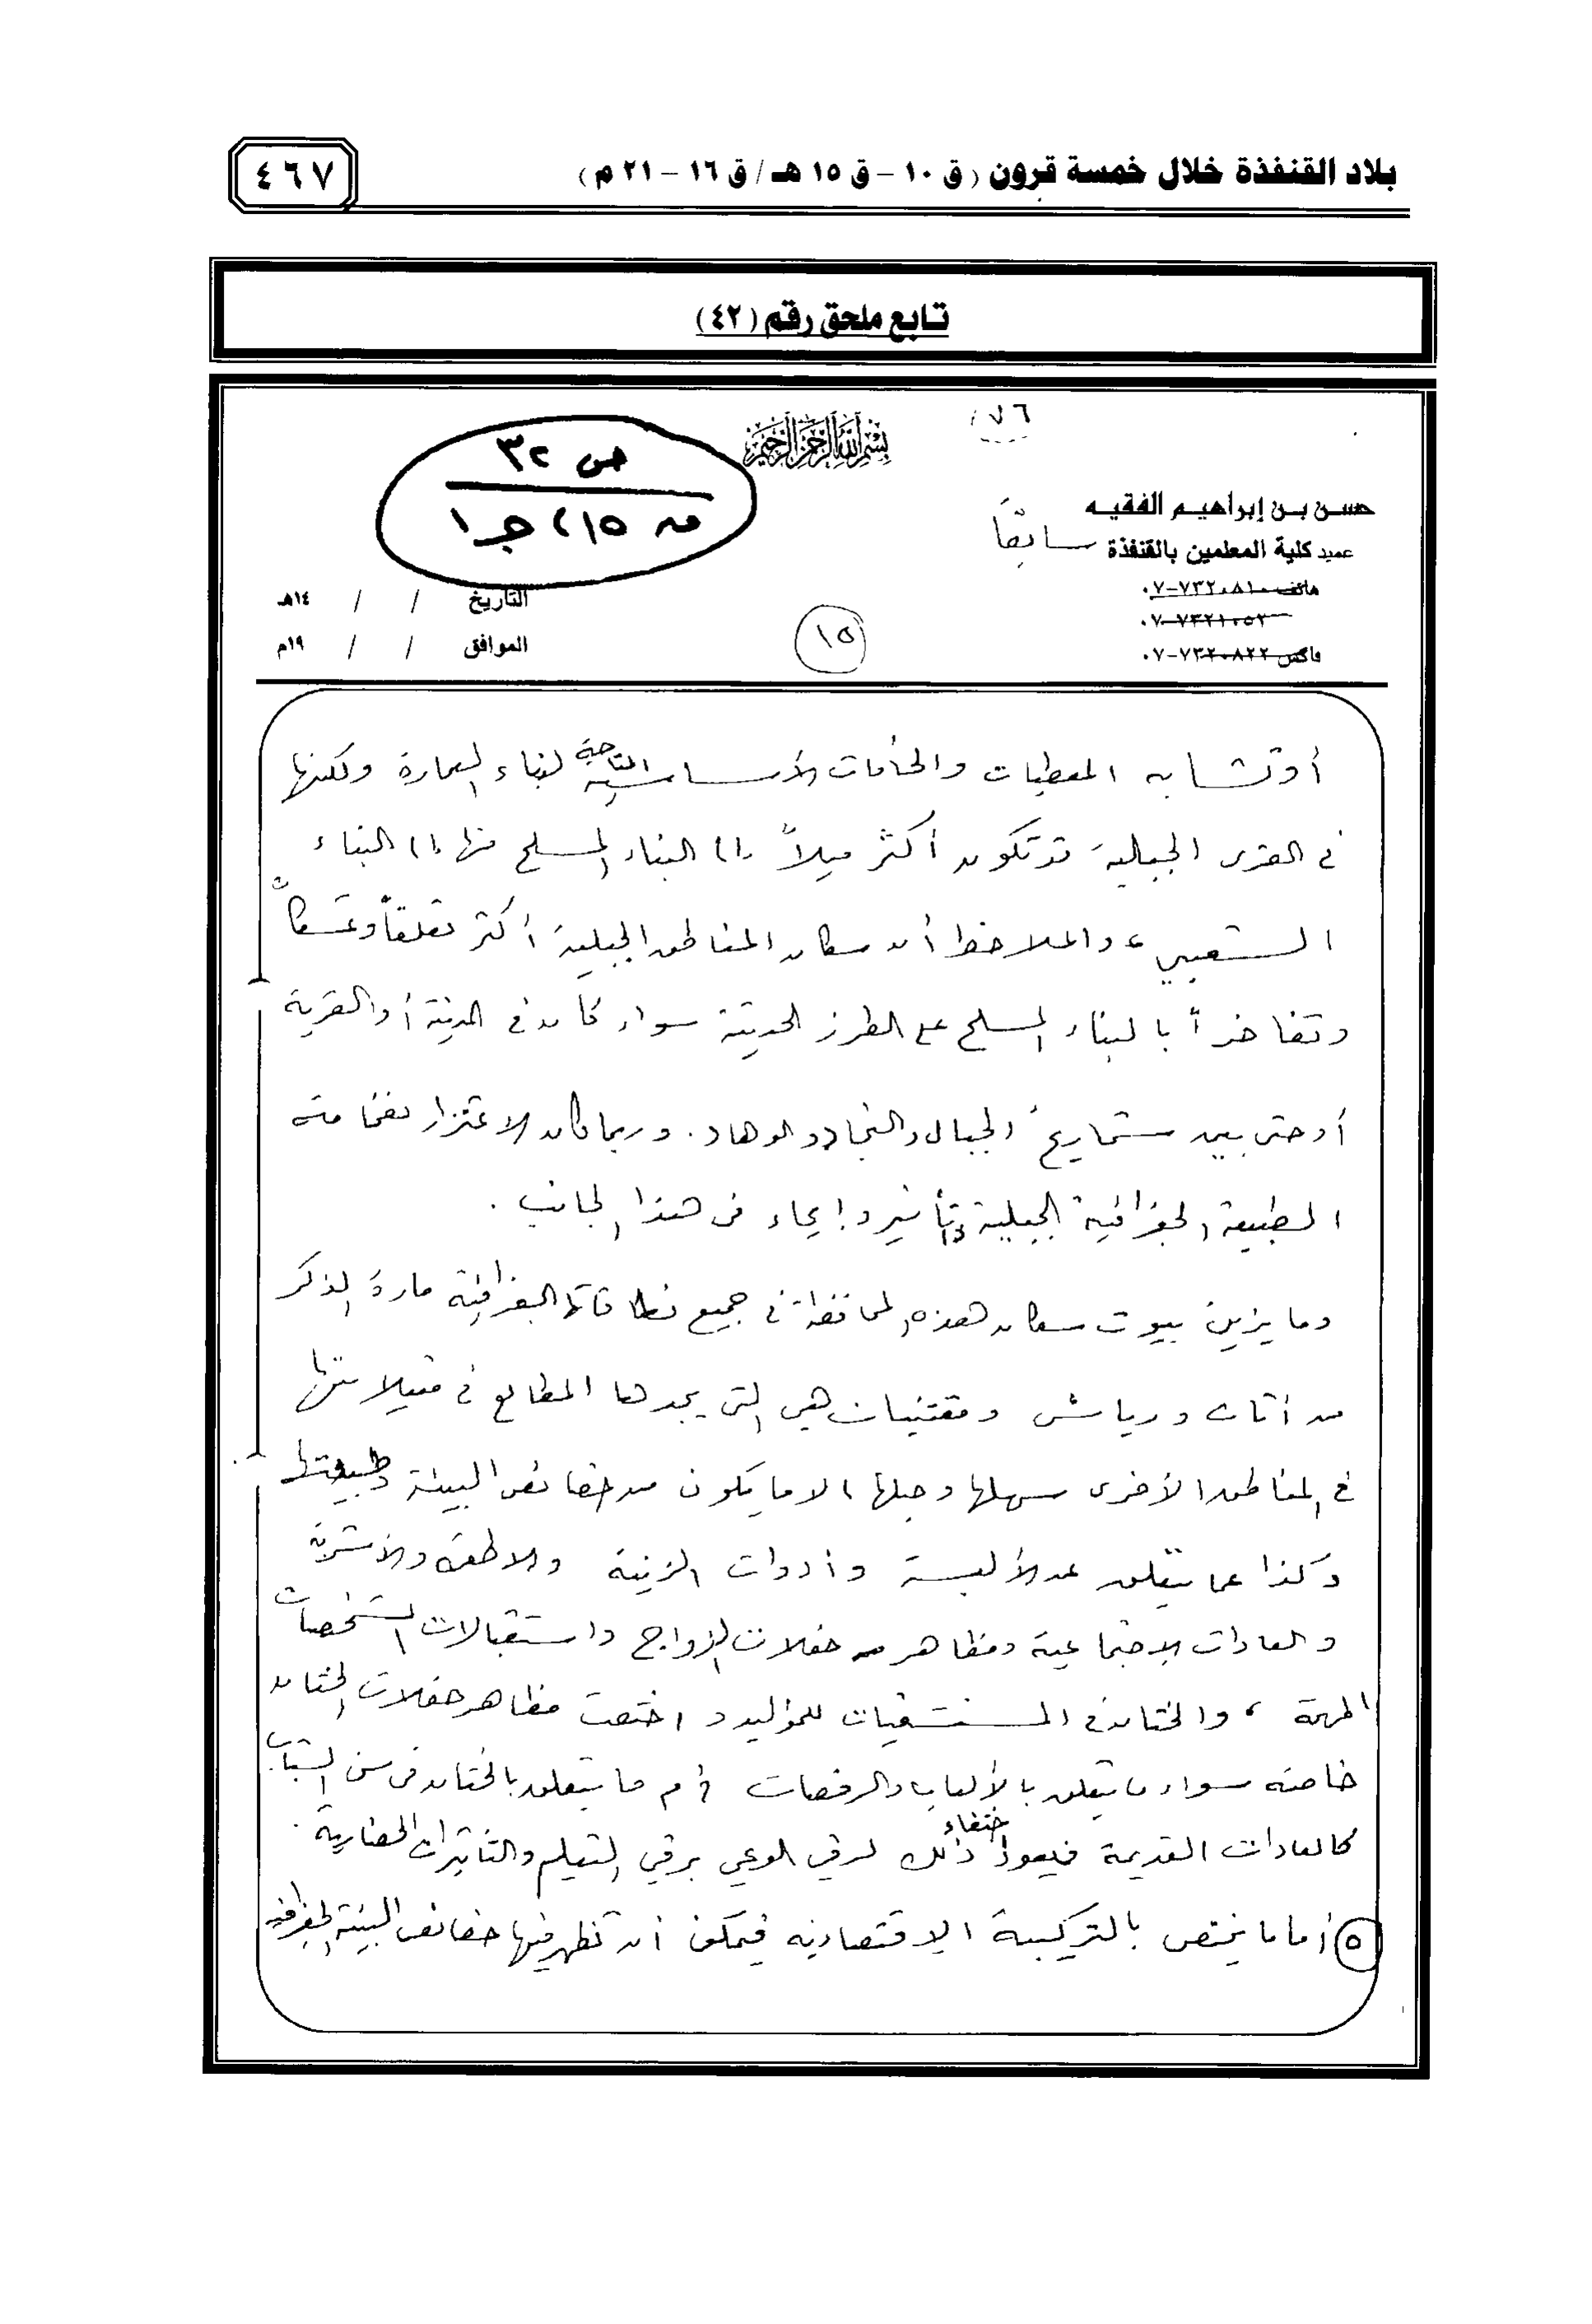 بلاد القنفذة خلال خمسة قرون (ق ١٠ - ق ١٥ هـ / ق ١٦ - ٢١ م)
٤٦٧
تابع ملحق رقم (٤٢)
٧٦
بسم الله الرحمن الرحيم
ص ٣٢
١٥ ج ١
حسن بن إبراهيم الفقيه
عميد كلية المعلمين بالقنفذة سابقاً
هاتف ٠٧-٧٣٢٠٨١٠
٠٧-٧٣٢١٠٥٢
فاكس ٠٧-٧٣٢٠٨٢٢
التاريخ / / ١٤هـ
الموافق / / ١٩م
١٥
أو تشابه المعطيات والخامات الأساسية المتاحة لبناء العمارة ولكنها
في القرى الجبلية قد تكون أكثر ميلاً إلى البناء المسلح منها إلى البناء
الشعبي، والملاحظ أن سكان المناطق الجبلية أكثر تعلقاً وتمسكاً
وتفاخراً بالبناء المسلح على الطرز الحديثة سواء كان في المدينة أو القرية
أو حتى بين شماريخ الجبال والنجاد والوهاد. وربما كان للاعتزاز بفخامة
الطبيعة الجغرافية الجبلية تأثير وإيحاء في هذا الجانب.
وما يزين بيوت سكان هذه المحافظة في جميع نطاقاتها الجغرافية مارة الذكر
من أثاث ورياش ومقتنيات هي التي يجدها المطالع في مثيلاتها
في المناطق الأخرى سهلها وجبلها، إلا ما يكون من خصائص البيئة وطبيعتها
وكذا عما يتعلق عن الألبسة وأدوات الزينة والأطعمة والأشربة
والعادات الاجتماعية ومظاهر حفلات الزواج واستقبالات الشخصيات
المهمة، والختان في المستشفيات للمواليد واختفت مظاهر حفلات الختان
خاصة سواء ما يتعلق بالألعاب والرقصات أم ما يتعلق بالختان في سن الشباب
كالعادات القديمة فيعود اختفاء ذلك لرقي الوعي برقي التعليم والتأثيرات الحضارية.
٥ أما ما يختص بالتركيبة الاقتصادية فيمكن أن تظهر فيها خصائص البيئة الجغرافية